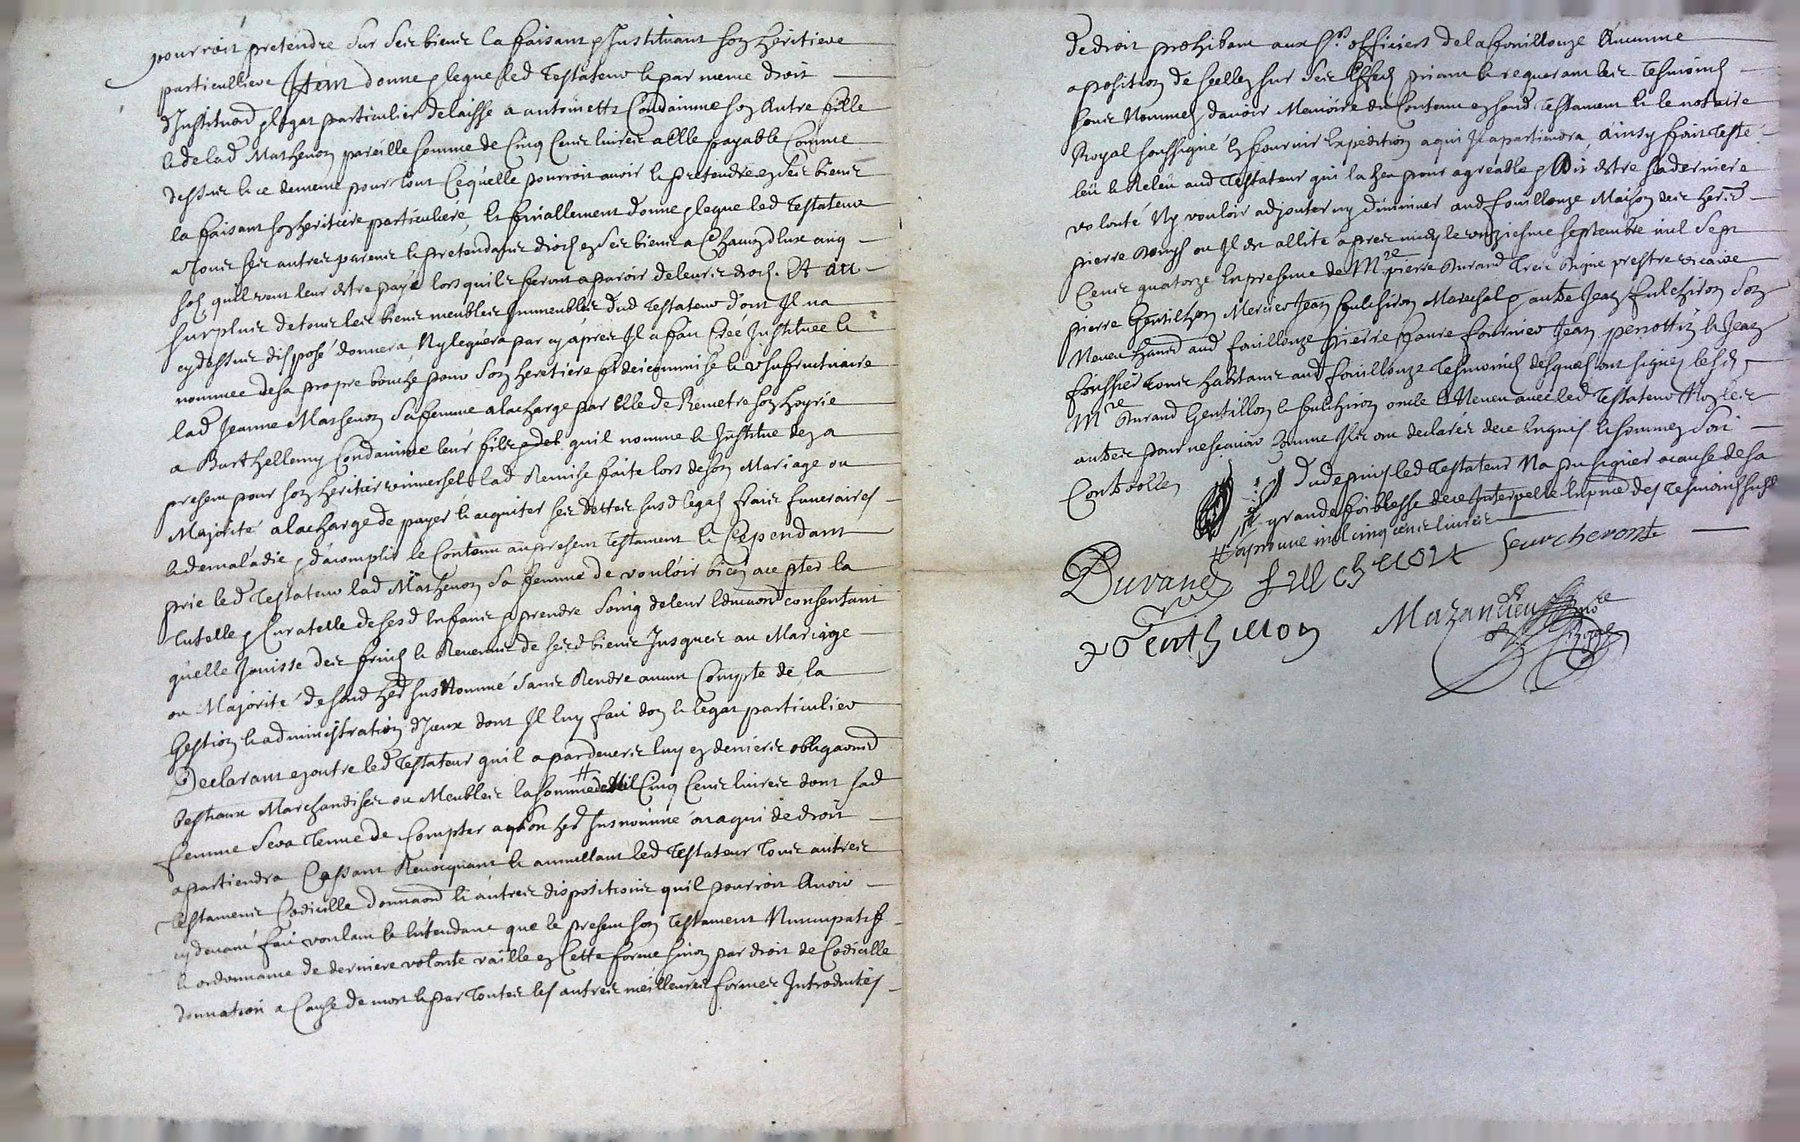 pourroit pretendre sur ses biens la faisant & Instituant son heritiere
particulliere Item donne & legue led Testateur & par meme droit
d'Institu͠on & legat particulier delaisse a antoinette Condamine son autre fille
& de lad Mathevon pareille somme de Cinq Cens livres a Elle payable Comme
dessus & ce de meme pour tout Ce qu'elle pourroit avoir & pretendre en ses biens
la faisant son heritiere particuliere, Et finallement donne & legue led Testateur
a tous ses autres parens & pretendans droit en ses biens a Chacun d'eux cinq
sols qu'il veut leur estre payé lors qu'ils feront aparoir de leurs droits. Et au
surplus de tous les biens meubles Immeubles dud Testateur dont Il n'a
cy dessus disposé donnera Ny leguera par cy apres Il a fait Creé Instituee &
nommee de sa propre bouche pour son heretiere fideicommise & Usufructuaire
lad Jeanne Mathevon sa femme a la charge par Elle de Remetre son hoyrie
a Barthellemy Condamine leur fils & det qu'il nomme & Institue des a
present pour son heritier universel lad Remise faite lors de son Mariage ou
Majorité a la charge de payer & acquiter ses dettes susd legats frais funeraires
& de maladie & d'acomplir le Contenu au present Testament & Cependant
prie led Testateur lad Mathevon sa femme de vouloir bien accepter la
tutelle & Curatelle de sesd Enfans & prendre soing de leur Educa͠on consentant
qu'elle Jouisse des fruits & Revenus de sesd biens Jusques au Mariage
ou Majorité de sond her susNommé sans Rendre aucun Compte de la
Gestion & administration d'Iceux dont Il luy fait don & legat particulier
Declarant en outre led Testateur qu'il a par devers luy en deniers obliga͠ons
bestiaux Marchandises ou Meubles la somme de Mil Cinq Cens livres dont sad
femme sera tenue de Compter a son her susnommé ou a qui de droit
apartiendra Cassant Revocquant & annullant led Testateur tous autres
testamens Codicille dona͠on & autres dispositions qu'il pourroit Avoir
cy devant fait voulant & Entendant que le present son Testament Nuncupatif
& ordonnance de derniere volonté vaille en Cette forme sinon par droit de Codicille
donnation a Cause de mort & par toutes les autres meilleures formes Introduites
de droit prohibant aux srs officiers de la fouillouze Aucune
aposition de scellez sur ses Effets priant & requerant les tesmoins
sous Nommez d'avoir Memoire du Contenu en sond Testament & le notaire
Royal soussigné En fournir Expedition a qui Il apartiendra, ainsy fait testé
leu & Releu aud Testateur qui l'a heu pour agreable & dit estre sa derniere
volonté N'y vouloir adjouter ny diminuer aud fouillouze Maison des her
pierre ou Il est allité apres midy le onziesme septembre mil sept
Cens quatorze En presence de Mre pierre Durand prestre vicaire
pierre Gentilhon Mercier Jean fulchiron Marechal & autre Jean fulchiron son
Neveu aud fouillouze pierre fournier Jean perottin & Jean
tous habitans aud fouillouze Tesmoins desquels ont signés lesd
Mre Durand Gentillon & fulchiron oncle & Neveu avec led Testateur Non les
autres pour ne scavoir Comme Ils ont declarés de ce Enquis & sommez soit
Controllé
Du depuis led Testateur N'a pu signer a cause de sa
grande foiblesse de ce Interpelle En pnce des tesmoins susd
# aprouve mil cinq cens livres
Durand fulchiron
Genthillon Mazandieu nore
Royal